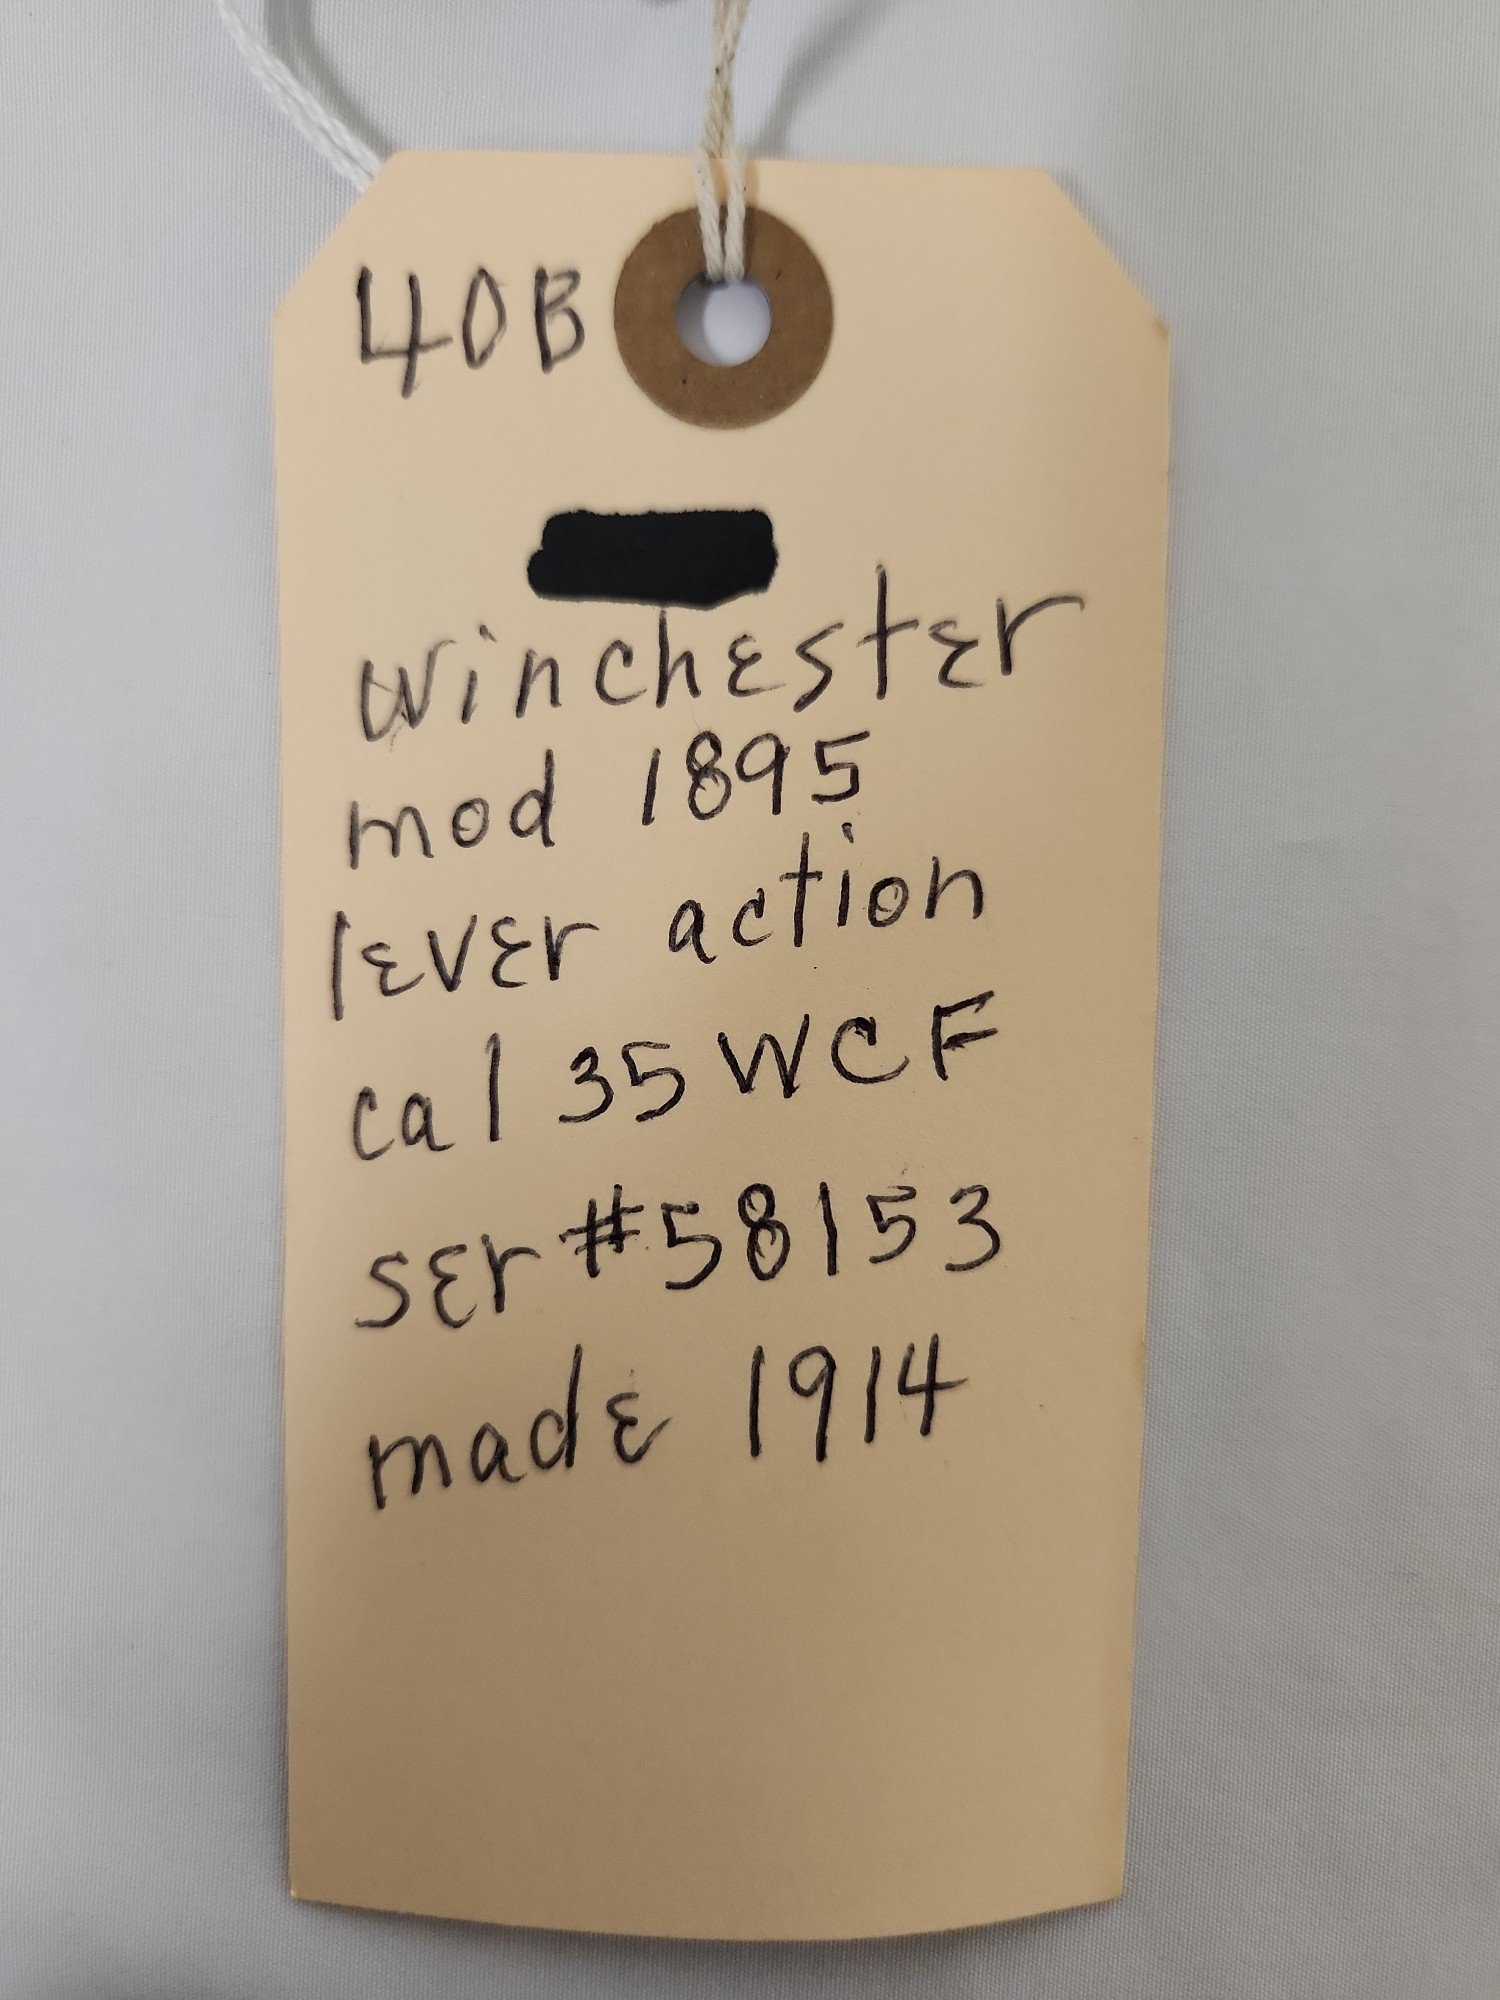 40B
winchester
mod 1895
lever action
cal 35 WCF
ser #58153
made 1914